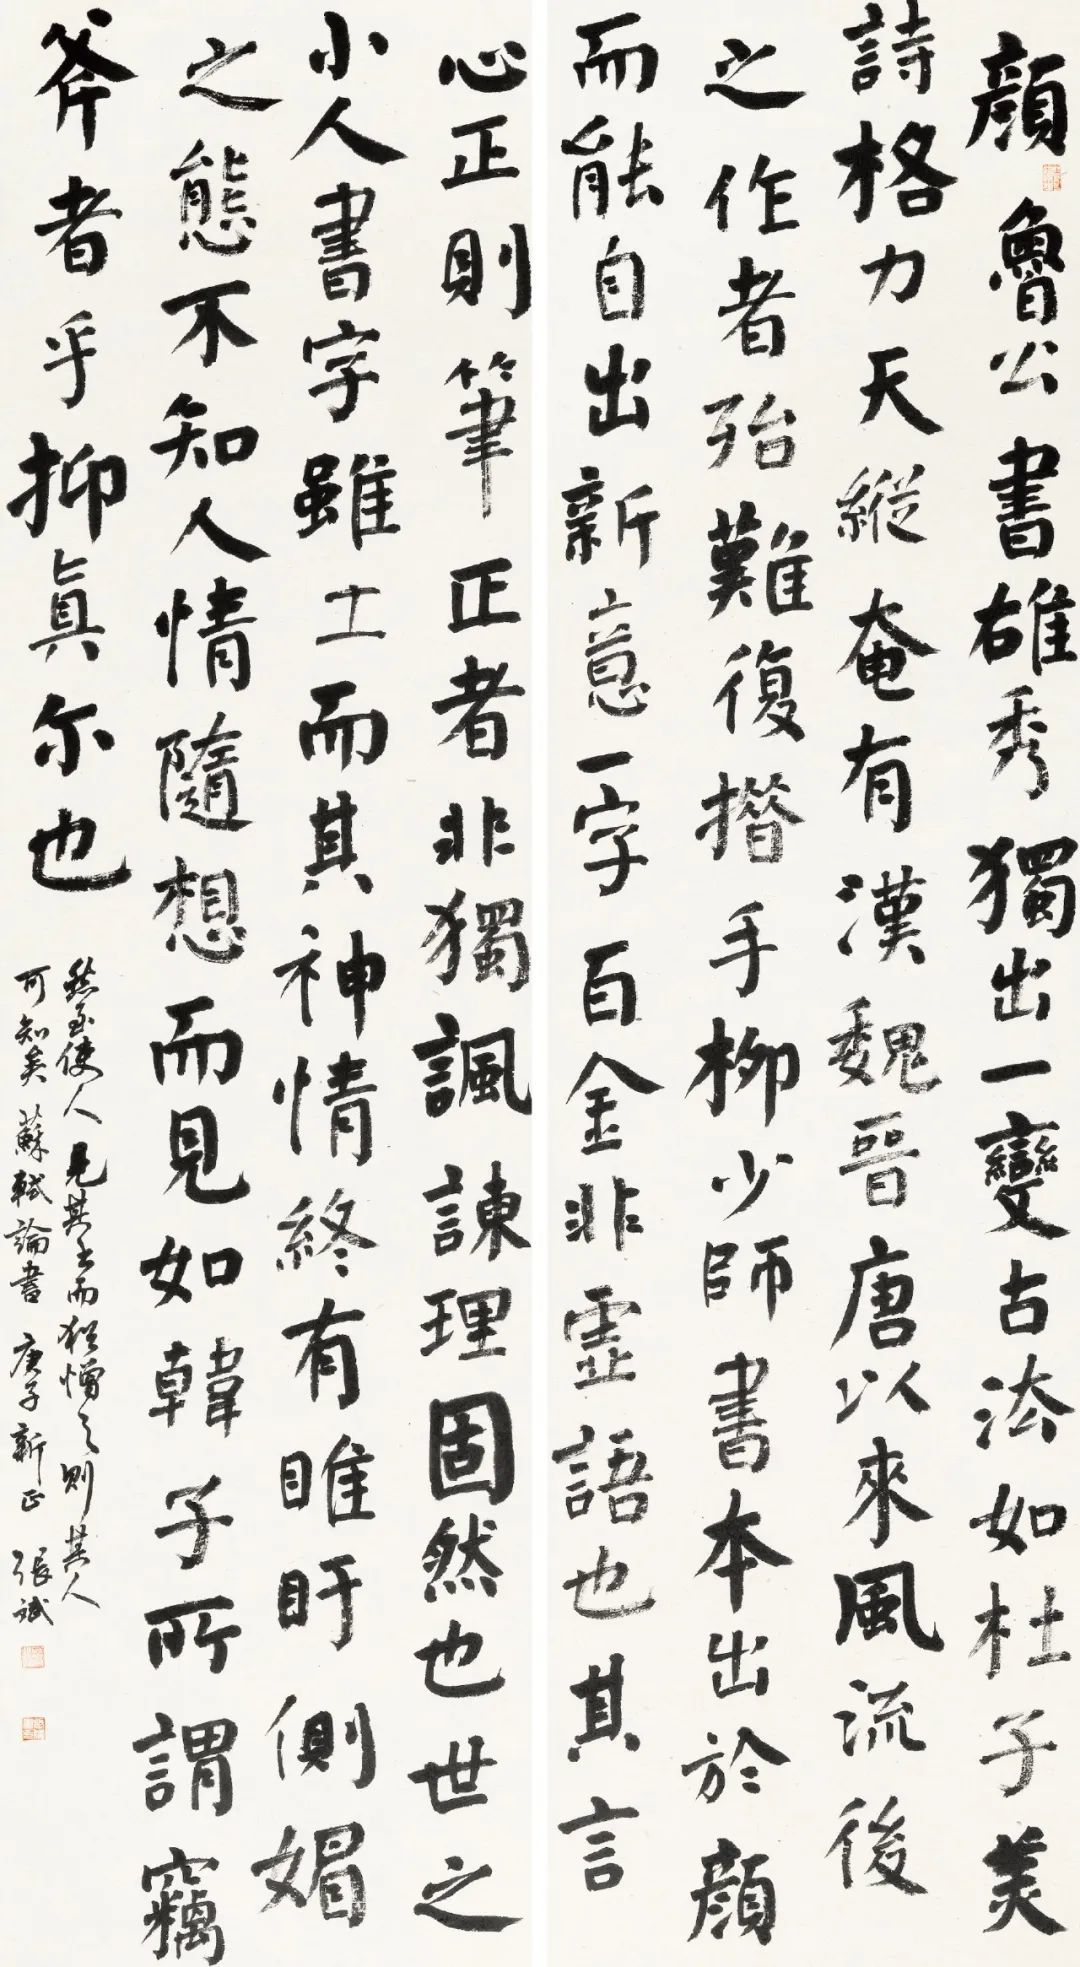 顏魯公書雄秀獨出一變古法如杜子美
詩格力天縱奄有漢魏晉唐以來風流後
之作者殆難復措手柳少師書本出於顏
而能自出新意一字百金非虛語也其言
心正則筆正者非獨諷諫理固然也世之
小人書字雖士而其神情終有睢盱側媚
之態不知人情隨想而見如韓子所謂竊
斧者乎抑真尔也
然至使人見其書而猶憎之則其人
可知矣 蘇軾論書 庚子新正 張斌